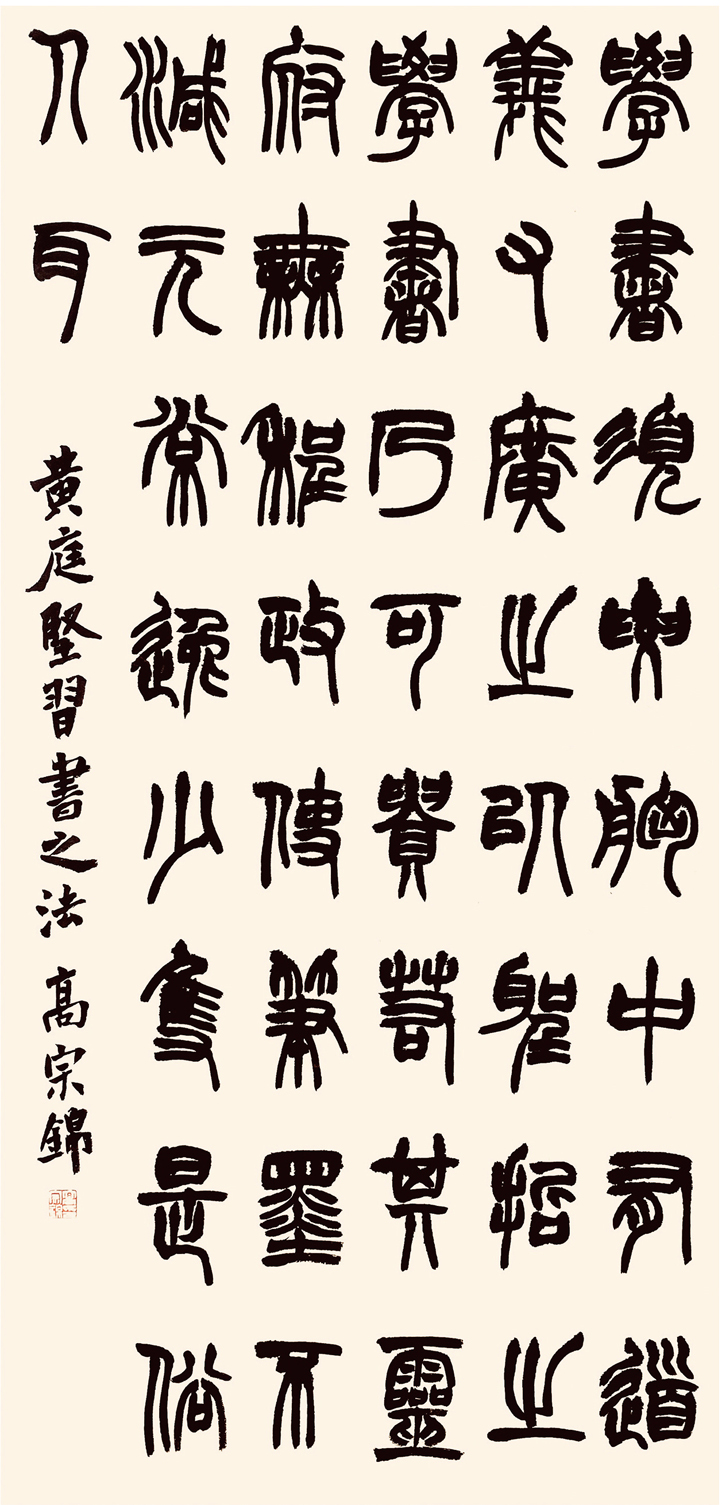 學書須要胸中有道
義又廣之以聖哲之
學書乃可貴若其靈
府無程政使筆墨不
減元常逸少隻是俗
人耳
黃庭堅習書之法 髙宗錦